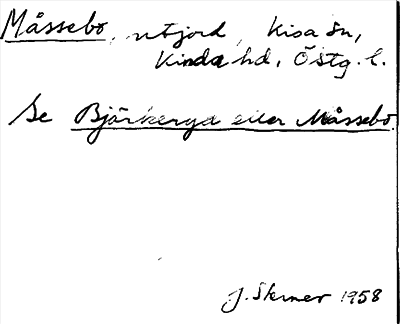 Måssebo, utjord, Kisa sn,
Kinda hd, Östg. l.
Se Björkeryd eller Måssebo.
J. Sterner 1958